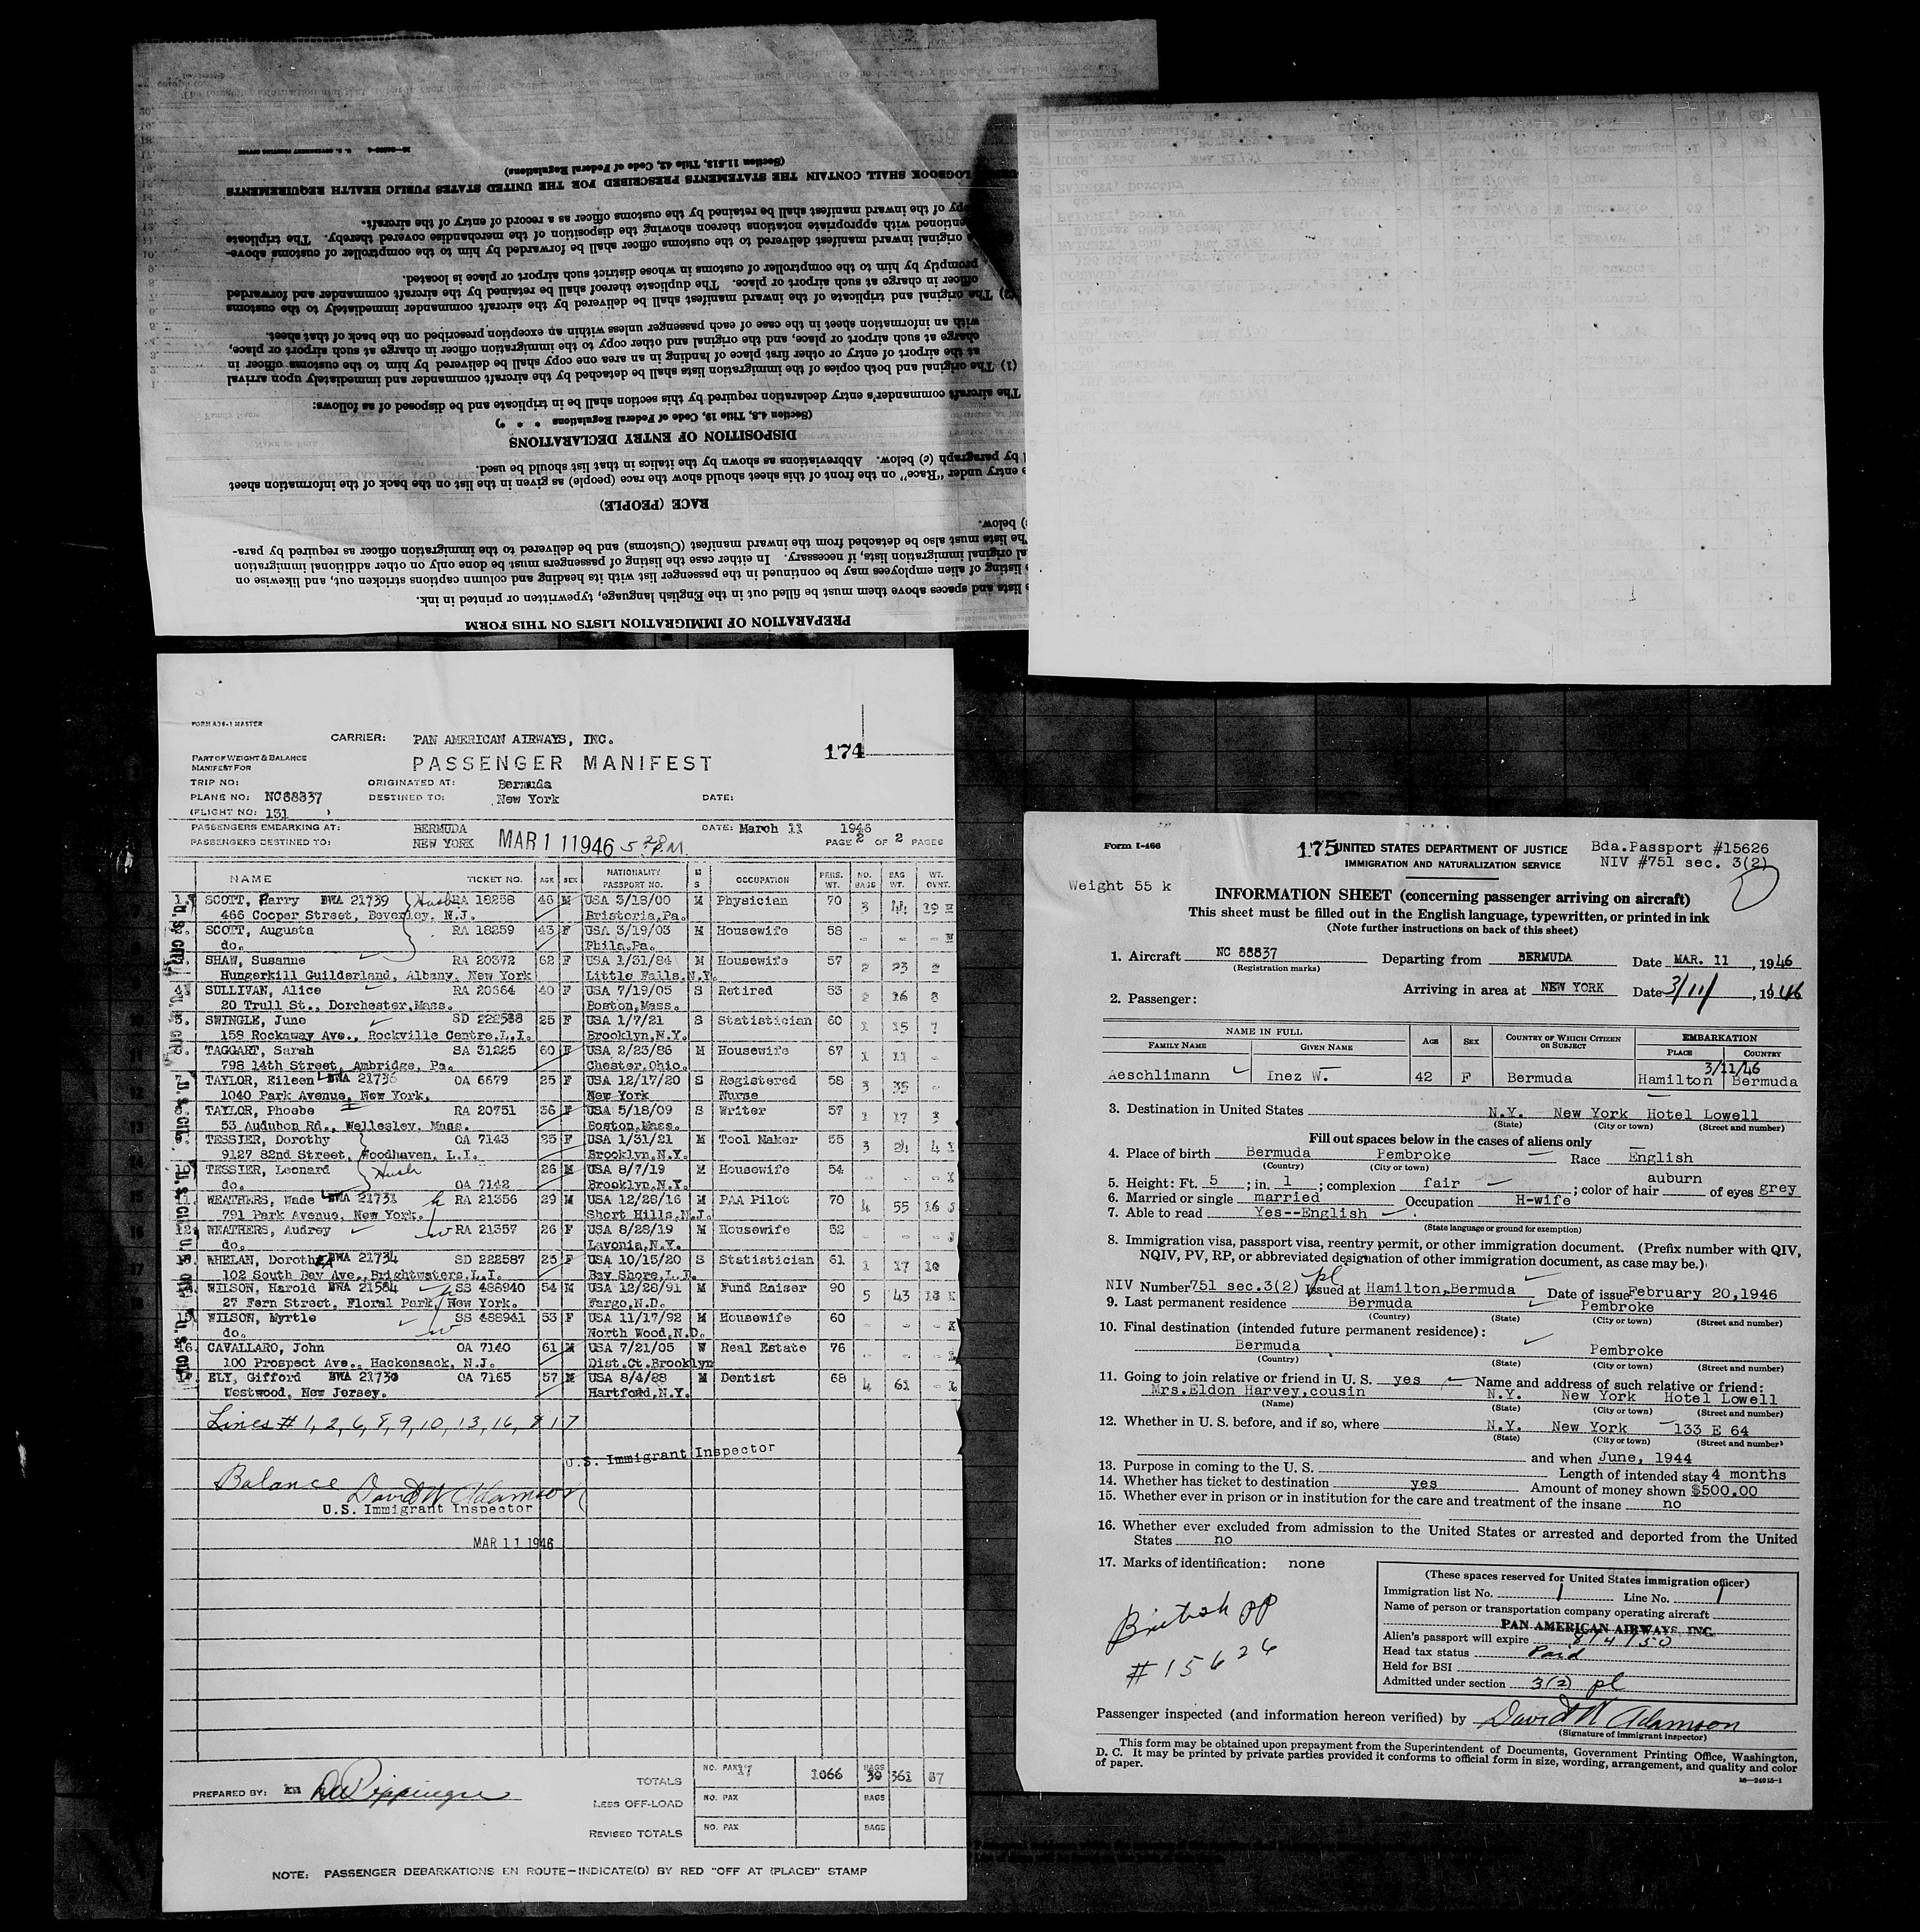 PREPARATION OF IMMIGRATION LISTS ON THIS FORM
lists and spaces above them must be filled out in the English language, typewritten or printed in ink.
listing of alien employees may be continued in the passenger list with its heading and column captions stricken out, and likewise on
original immigration lists, if necessary. In either case the listing of passengers must be done only on other additional immigration
The lists must also be detached from the inward manifest (Customs) and be delivered to the immigration officer as required by para-
below.
RACE (PEOPLE)
entry under "Race" on the front of this sheet should show the race (people) as given in the list on the back of the information sheet
by paragraph (c) below. Abbreviations as shown by the italics in that list should be used.
DISPOSITION OF ENTRY DECLARATIONS
(Section 4.8, Title 19, Code of Federal Regulations * * *)
The aircraft commander's entry declaration required by this section shall be in triplicate and be disposed of as follows:
(1) The original and both copies of the immigration lists shall be detached by the aircraft commander and immediately upon arrival
at the airport of entry or other first place of landing in an area one copy shall be delivered by him to the customs officer in
charge at such airport or place, and the original and other copy to the immigration officer in charge at such airport or place,
with an information sheet in the case of each passenger unless within an exception prescribed on the back of that sheet.
(2) The original and triplicate of the inward manifest shall be delivered by the aircraft commander immediately to the customs
officer in charge at such airport or place. The duplicate thereof shall be retained by the aircraft commander and forwarded
promptly by him to the comptroller of customs in whose district such airport or place is located.
original inward manifest delivered to the customs officer shall be forwarded by him to the comptroller of customs above-
mentioned with appropriate notations thereon showing the disposition of the merchandise covered thereby. The triplicate
copy of the inward manifest shall be retained by the customs officer as a record of entry of the aircraft.
LOGBOOK SHALL CONTAIN THE STATEMENTS PRESCRIBED FOR THE UNITED STATES PUBLIC HEALTH REQUIREMENTS
(Section 11.513, Title 42, Code of Federal Regulations)
FORM A36-1 MASTER
CARRIER: PAN AMERICAN AIRWAYS, INC.
174
PART OF WEIGHT & BALANCE
MANIFEST FOR
PASSENGER MANIFEST
TRIP NO: ORIGINATED AT: Bermuda
PLANE NO: NC88837 DESTINED TO: New York DATE:
(FLIGHT NO: 131 )
PASSENGERS EMBARKING AT: BERMUDA DATE: March 11 1946
PASSENGERS DESTINED TO: NEW YORK MAR 11 1946 PAGE 2 OF 2 PAGES
NAME TICKET NO. AGE SEX NATIONALITY PASSPORT NO. M S OCCUPATION PERS. WT. NO. BAGS BAG WT. WT. OVWT.
1. SCOTT, Harry BWA 21739 Husb RA 18258 46 M USA 3/18/00 M Physician 70 3 44 19
466 Cooper Street, Beverley, N.J. Bristoria,Pa.
2. SCOTT, Augusta RA 18259 43 F USA 3/19/03 M Housewife 58 - - -
do. Phila.Pa.
3. SHAW, Susanne RA 20372 62 F USA 1/31/84 M Housewife 57 2 23 2
Hungerkill Guilderland, Albany, New York Little Falls,N.Y.
4. SULLIVAN, Alice RA 20664 40 F USA 7/19/05 S Retired 53 2 16 8
20 Trull St., Dorchester,Mass. Boston,Mass.
5. SWINGLE, June SD 222588 25 F USA 1/7/21 S Statistician 60 1 15 7
158 Rockaway Ave., Rockville Centre,L.I. Brooklyn,N.Y.
6. TAGGART, Sarah SA 31225 60 F USA 2/23/86 M Housewife 67 1 11 -
798 14th Street, Ambridge, Pa. Chester,Ohio.
7. TAYLOR, Eileen BWA 21736 OA 6679 25 F USA 12/17/20 S Registered 58 3 35 -
1040 Park Avenue, New York. New York Nurse
8. TAYLOR, Phoebe RA 20751 36 F USA 5/18/09 S Writer 57 1 17 3
53 Audubon Rd., Wellesley, Mass. Boston,Mass.
9. TESSIER, Dorothy OA 7143 25 F USA 1/31/21 M Tool Maker 55 3 24 4
9127 82nd Street, Woodhaven, L.I. Brooklyn,N.Y.
10. TESSIER, Leonard Husb 26 M USA 8/7/19 M Housewife 54 - - -
do. OA 7142 Brooklyn,N.Y.
11. WEATHERS, Wade BWA 21731 h RA 21356 29 M USA 12/28/16 M PAA Pilot 70 4 55 16
791 Park Avenue, New York. Short Hills,N.J.
12. WEATHERS, Audrey w RA 21357 26 F USA 8/28/19 M Housewife 52 - - -
do. Lavonia,N.Y.
13. WHELAN, Dorothy BWA 21734 SD 222587 25 F USA 10/15/20 S Statistician 61 1 17 10
102 South Bay Ave.,Brightwaters,L.I. Bay Shore,L.I.
14. WILSON, Harold BWA 21584 h SS 488940 54 M USA 12/28/91 M Fund Raiser 90 5 43 18
27 Fern Street, Floral Park, New York. Fargo,N.D.
15. WILSON, Myrtle w SS 488941 53 F USA 11/17/92 M Housewife 60 - - -
do. North Wood,N.D.
16. CAVALLARO, John OA 7140 61 M USA 7/21/05 W Real Estate 76 - - -
100 Prospect Ave., Hackensack, N.J. Dist.Ct.Brooklyn
17. ELY, Gifford BWA 21730 OA 7165 57 M USA 8/4/88 M Dentist 68 4 61 -
Westwood, New Jersey. Hartford,N.Y.
Lines # 1, 2, 6, 8, 9, 10, 13, 16, & 17
U.S. Immigrant Inspector
Balance David W Adamson
U.S. Immigrant Inspector
MAR 11 1946
TOTALS NO. PAX 17 1066 BAGS 30 361 87
PREPARED BY:
LESS OFF-LOAD NO. PAX BAGS
REVISED TOTALS NO. PAX BAGS
NOTE: PASSENGER DEBARKATIONS EN ROUTE—INDICATE(D) BY RED "OFF AT (PLACE)" STAMP
Form I-466
175 UNITED STATES DEPARTMENT OF JUSTICE Bda.Passport #15626
IMMIGRATION AND NATURALIZATION SERVICE NIV #751 sec. 3(2)
Weight 55 k
INFORMATION SHEET (concerning passenger arriving on aircraft)
This sheet must be filled out in the English language, typewritten, or printed in ink
(Note further instructions on back of this sheet)
1. Aircraft NC 88837 Departing from BERMUDA Date MAR. 11, 1946
(Registration marks)
Arriving in area at NEW YORK Date 3/11/, 1946
2. Passenger:
NAME IN FULL AGE SEX COUNTRY OF WHICH CITIZEN OR SUBJECT EMBARKATION
FAMILY NAME GIVEN NAME PLACE COUNTRY
3/11/46
Aeschlimann Inez W. 42 F Bermuda Hamilton Bermuda
3. Destination in United States N.Y. New York Hotel Lowell
(State) (City or town) (Street and number)
Fill out spaces below in the cases of aliens only
4. Place of birth Bermuda Pembroke Race English
(Country) (City or town)
5. Height: Ft. 5; in. 1; complexion fair; color of hair auburn of eyes grey
6. Married or single married Occupation H-wife
7. Able to read Yes--English
(State language or ground for exemption)
8. Immigration visa, passport visa, reentry permit, or other immigration document. (Prefix number with QIV,
NQIV, PV, RP, or abbreviated designation of other immigration document, as case may be.)
NIV Number 751 sec.3(2) pl Issued at Hamilton,Bermuda Date of issue February 20,1946
9. Last permanent residence Bermuda Pembroke
(Country) (State) (City or town) (Street and number)
10. Final destination (intended future permanent residence):
Bermuda Pembroke
(Country) (State) (City or town) (Street and number)
11. Going to join relative or friend in U. S. yes Name and address of such relative or friend:
Mrs.Eldon Harvey,cousin N.Y. New York Hotel Lowell
(Name) (State) (City or town) (Street and number)
12. Whether in U. S. before, and if so, where N.Y. New York 133 E 64
(State) (City or town) (Street and number)
and when June, 1944
13. Purpose in coming to the U. S. Length of intended stay 4 months
14. Whether has ticket to destination yes Amount of money shown $500.00
15. Whether ever in prison or in institution for the care and treatment of the insane no
16. Whether ever excluded from admission to the United States or arrested and deported from the United
States no
17. Marks of identification: none
British PP
#15626
(These spaces reserved for United States immigration officer)
Immigration list No. 1 Line No. 1
Name of person or transportation company operating aircraft
PAN AMERICAN AIRWAYS, INC.
Alien's passport will expire 8/4/50
Head tax status Paid
Held for BSI
Admitted under section 3(2) pl
Passenger inspected (and information hereon verified) by David W Adamson
(Signature of immigrant inspector)
This form may be obtained upon prepayment from the Superintendent of Documents, Government Printing Office, Washington,
D. C. It may be printed by private parties provided it conforms to official form in size, wording, arrangement, and quality and color
of paper.
16—24915-1